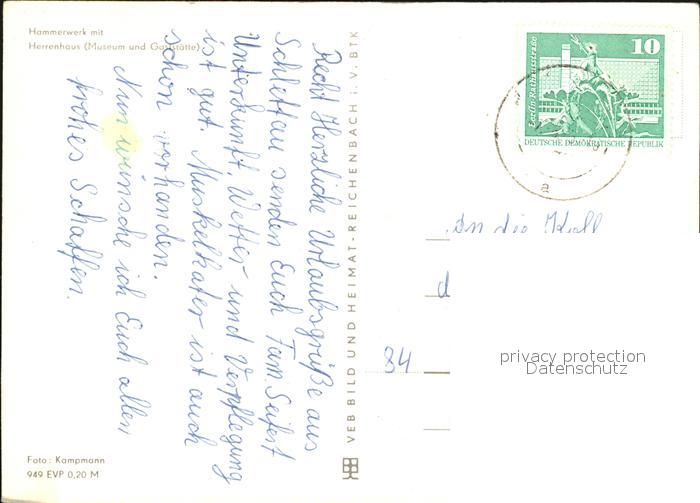 Hammerwerk mit
Herrenhaus (Museum und Gaststätte)
Recht Herzliche Urlaubsgrüße aus
Schlettau senden Euch Fam. Seifert
Unterkunft, Wetter und Verpflegung
ist gut. Muskelkater ist auch
schon vorhanden.
Nun wünsche ich Euch allen
frohes Schaffen.
Foto: Kampmann
949 EVP 0,20 M
VEB BILD UND HEIMAT - REICHENBACH i. V. BTK
Berlin-Rathausstraße
10
DEUTSCHE DEMOKRATISCHE REPUBLIK
An die Koll
d
84
privacy protection
Datenschutz